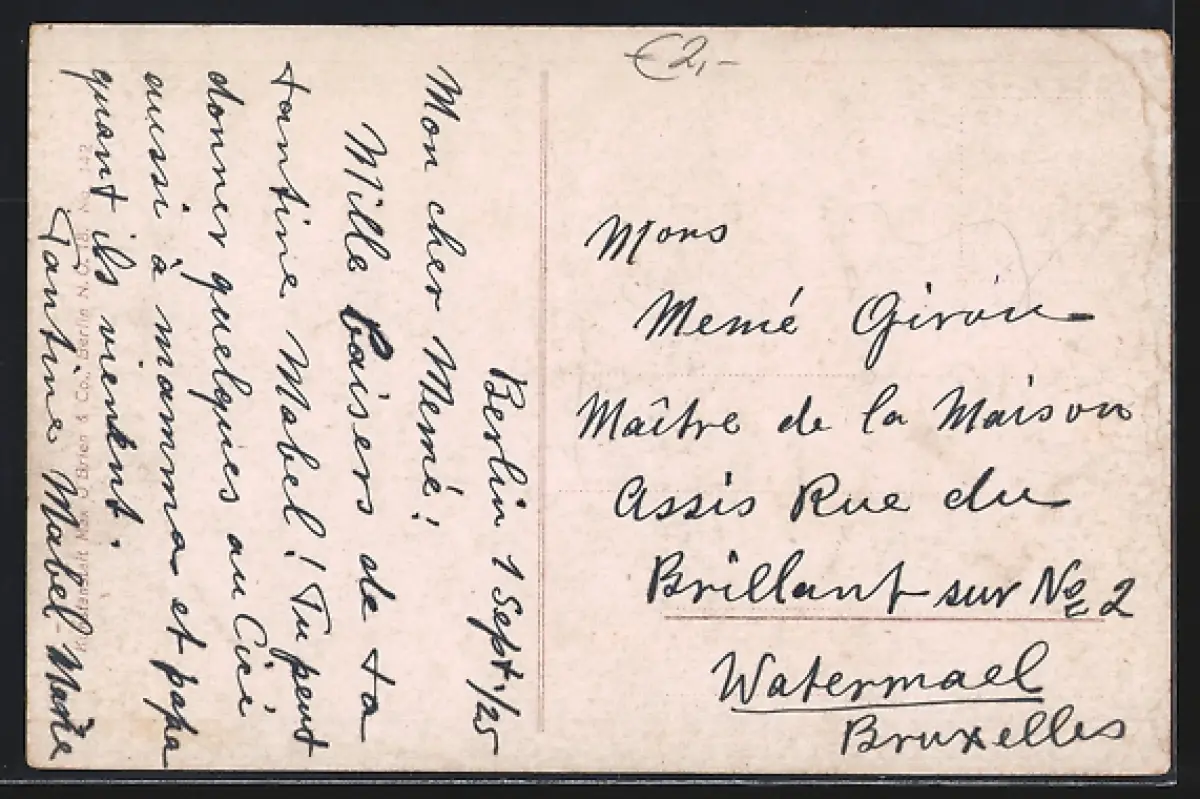 €2,-
Berlin 1 Sept./25
Mon cher Memé!
Mille baisers de ta
tantine Mabel! Tu peut
donner quelques au Cici
aussi à mamma et papa
quant ils vienent.
Tantine Mabel
Mons
Memé Giron
Maître de la Maison
Assis Rue du
Brillant sur No 2
Watermael
Bruxelles
Kunstanstalt Max O'Brien & Co., Berlin N.O. 18.